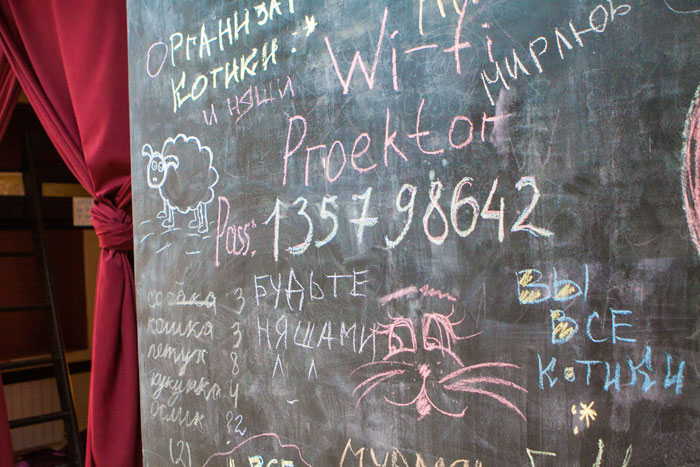 ОРГАНИЗАТ
КОТИКИ :*
И НЯШИ
Wi-fi
МИРЛЮБ
Proektor
Pass: 1357 98642
собака 3
кошка 3
петух 8
кукушка 4
ослик ?2
(2)
БУДЬТЕ
НЯШАМИ
ВЫ
ВСЕ
КОТИКИ
:*
ВСЕ